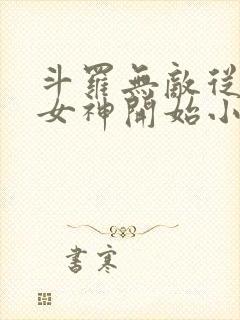 斗羅無敵從
女神開始小
書寒